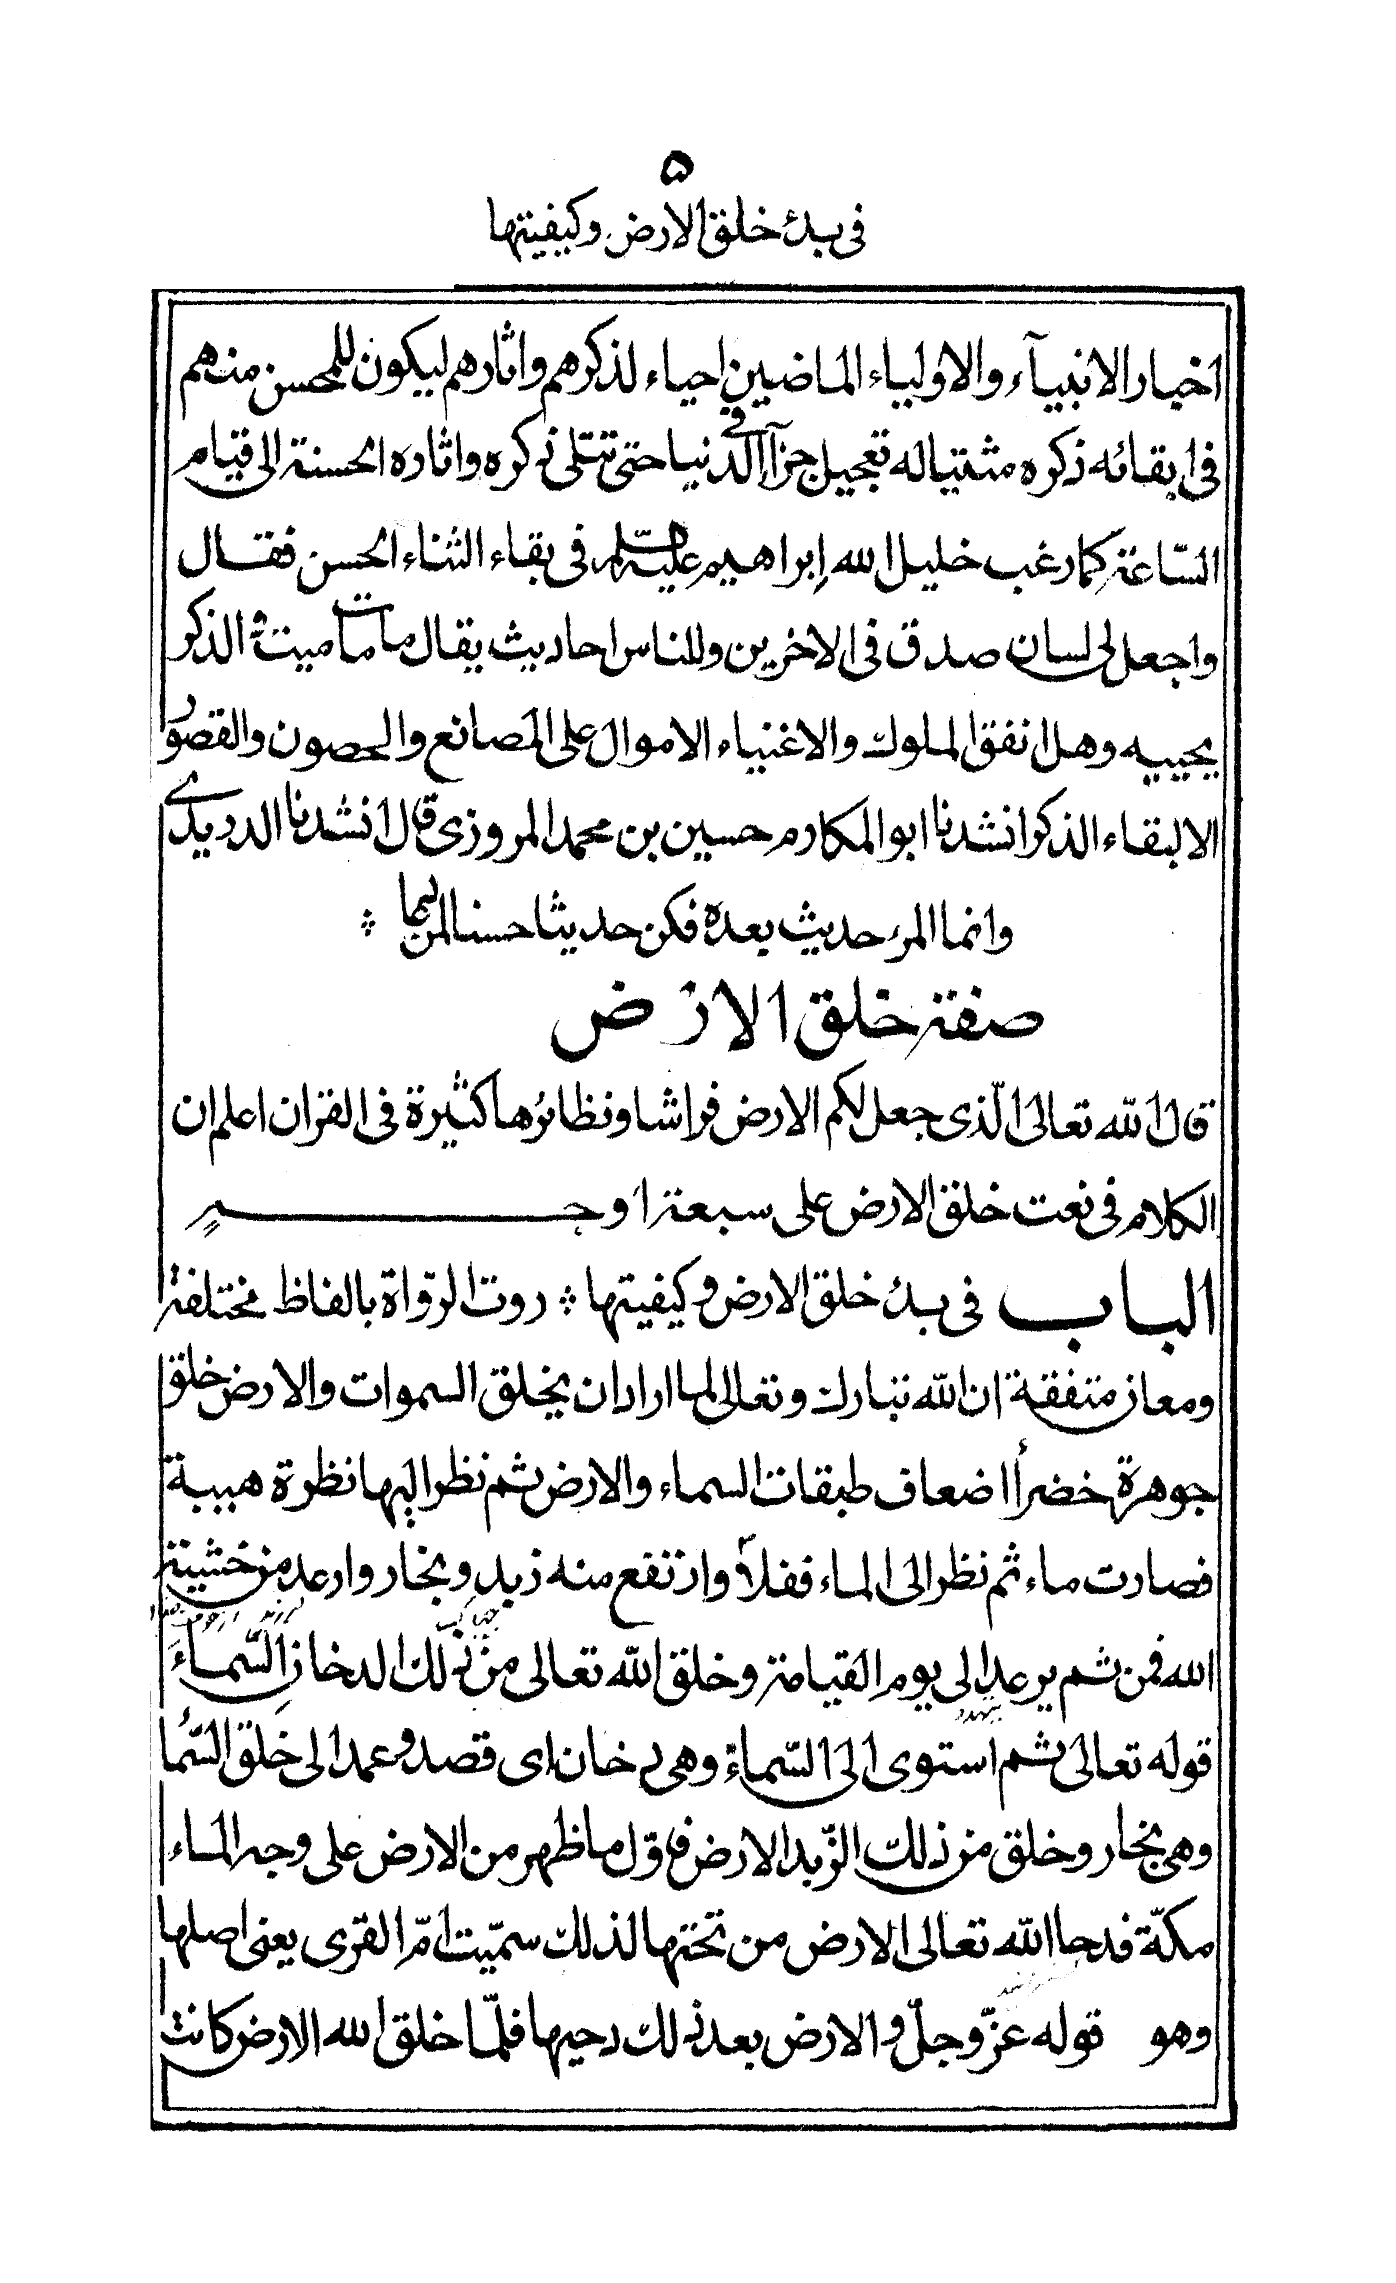 ۵
فى بدء خلق الارض وكيفيتها
اخبار الانبيآء والاولياء الماضين احياء لذكرهم واثارهم ليكون للمحسن منهم
فى ابقائه ذكره مثبتا له تعجيل جزآء فى الدنيا حتى تتلى ذكره واثاره الحسنة الى قيام
السّاعة كما رغب خليل الله إبراهيم عليه السّلم فى بقاء الثناء الحسن فقال
واجعل لى لسان صدق فى الاخرين وللناس احاديث يقال ما مات ميت والذكر
يحييه وهل انفق الملوك والاغنياء الاموال على المصانع والحصون والقصور
الا لبقاء الذكر انشدنا ابو المكارم حسين بن محمد المروزى قال انشدنا الدريدى
وانما المرء حديث بعده فكن حديثا حسنا لمن
صفة خلق الارض
قال الله تعالى الّذى جعل لكم الارض فراشا ونظائرها كثيرة فى القران اعلم ان
الكلام فى نعت خلق الارض على سبعة اوجه
الباب فى بدء خلق الارض وكيفيتها روت الرّواة بالفاظ مختلفة
ومعان متفقة ان الله تبارك وتعالى لما اراد ان يخلق السموات والارض خلق
جوهرة خضرأ اضعاف طبقات السماء والارض ثم نظر اليها نظرة هيبة
فصارت ماء ثم نظر الى الماء فغلا وارتفع منه زبد وبخار وارعد من خشية
الله فمن ثم يرعد الى يوم القيامة وخلق الله تعالى من ذلك الدخان السّماء
قوله تعالى ثم استوى الى السّماء وهى دخان اى قصد وعمد الى خلق السّما
وهى بخار وخلق من ذلك الزّبد الارض فاوّل ما ظهر من الارض على وجه الماء
مكّة فدحا الله تعالى الارض من تحتها لذلك سمّيت امّ القرى يعنى اصلها
وهو قوله عزّ وجلّ والارض بعد ذلك دحيها فلمّا خلق الله الارض كانت